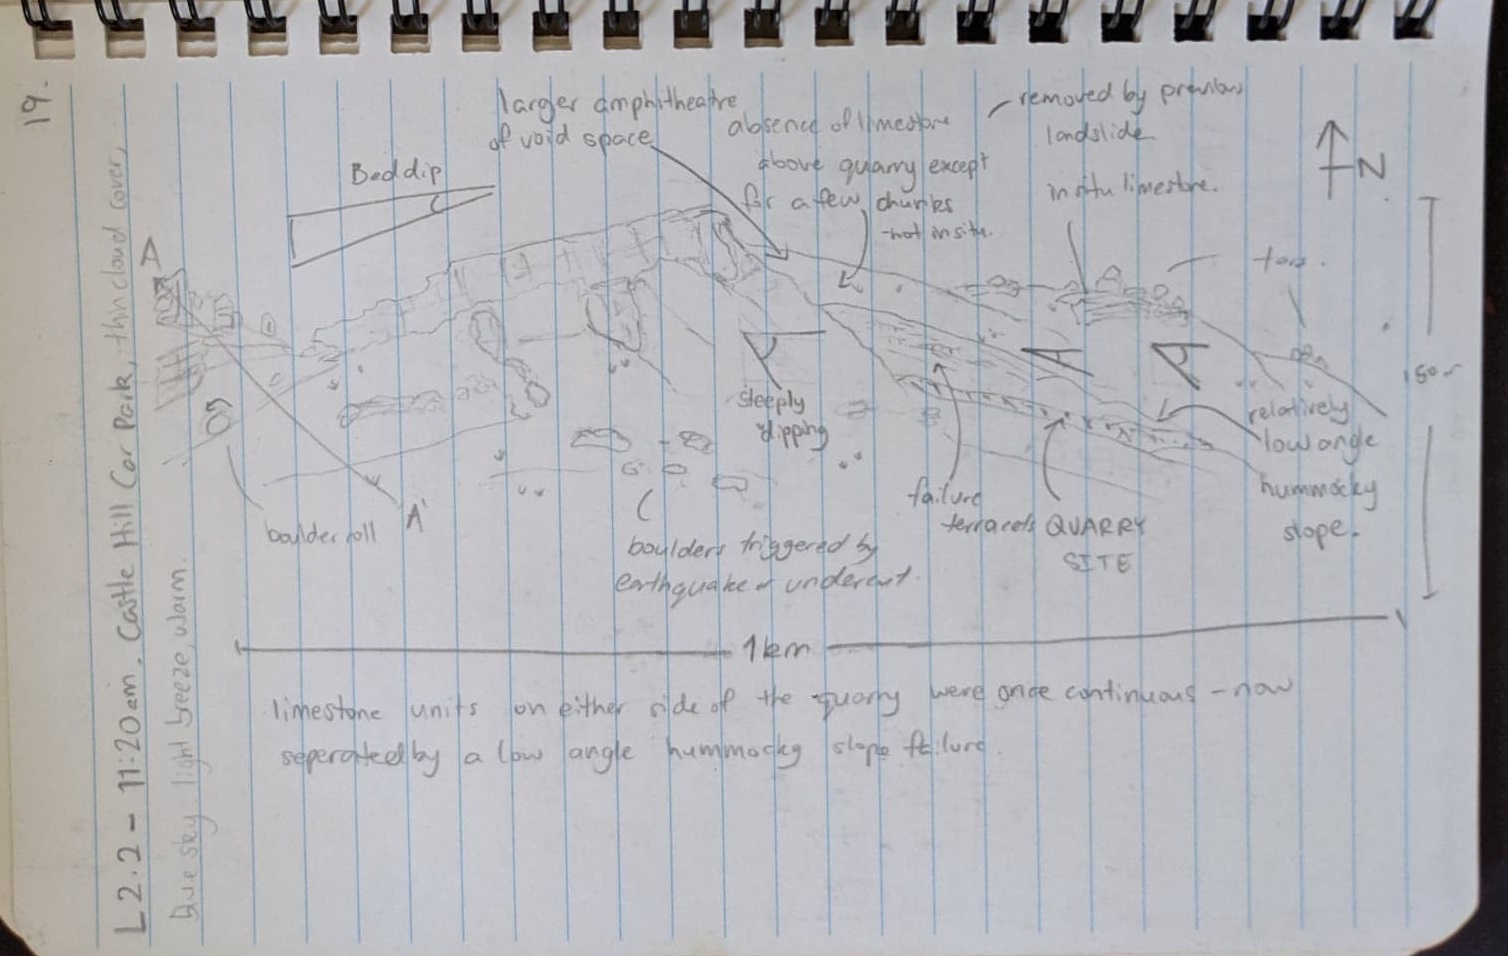 19.
L2.2 - 11:20am. Castle Hill Car Park, thin cloud cover,
blue sky, light breeze, warm.
larger amphitheatre
of void space
absence of limestone
above quarry except
for a few chunks
-not in situ.
removed by previous
landslide
in situ limestone.
N
Bed dip
A
tors.
150m
steeply
dipping
relatively
low angle
hummocky
slope.
failure
terracets
QUARRY
SITE
boulder roll
A'
boulders triggered by
earthquake or undercut.
1km
limestone units on either side of the quarry were once continuous - now
seperated by a low angle hummocky slope failure.